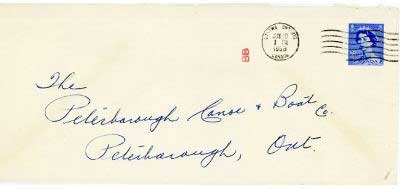 JUN 10
1 PM
CANADA
BB
The
Peterborough Canoe & Boat Co.
Peterborough, Ont.